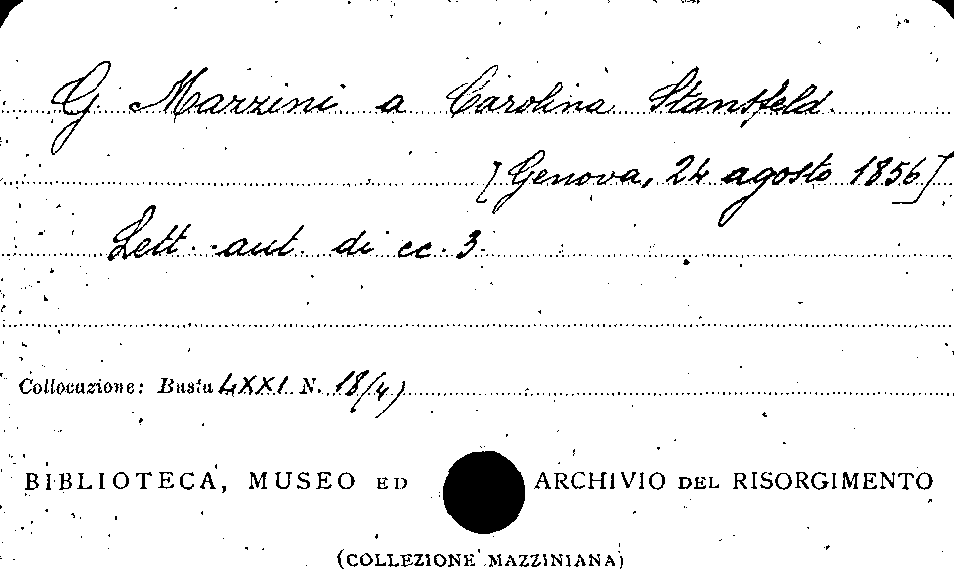 G. Mazzini a Carolina Stansfeld.
[Genova, 24 agosto 1856]
Lett. aut. di cc. 3.
Collocazione: Busta LXXI N. 18(4)
BIBLIOTECA, MUSEO ED ARCHIVIO DEL RISORGIMENTO
(COLLEZIONE MAZZINIANA)